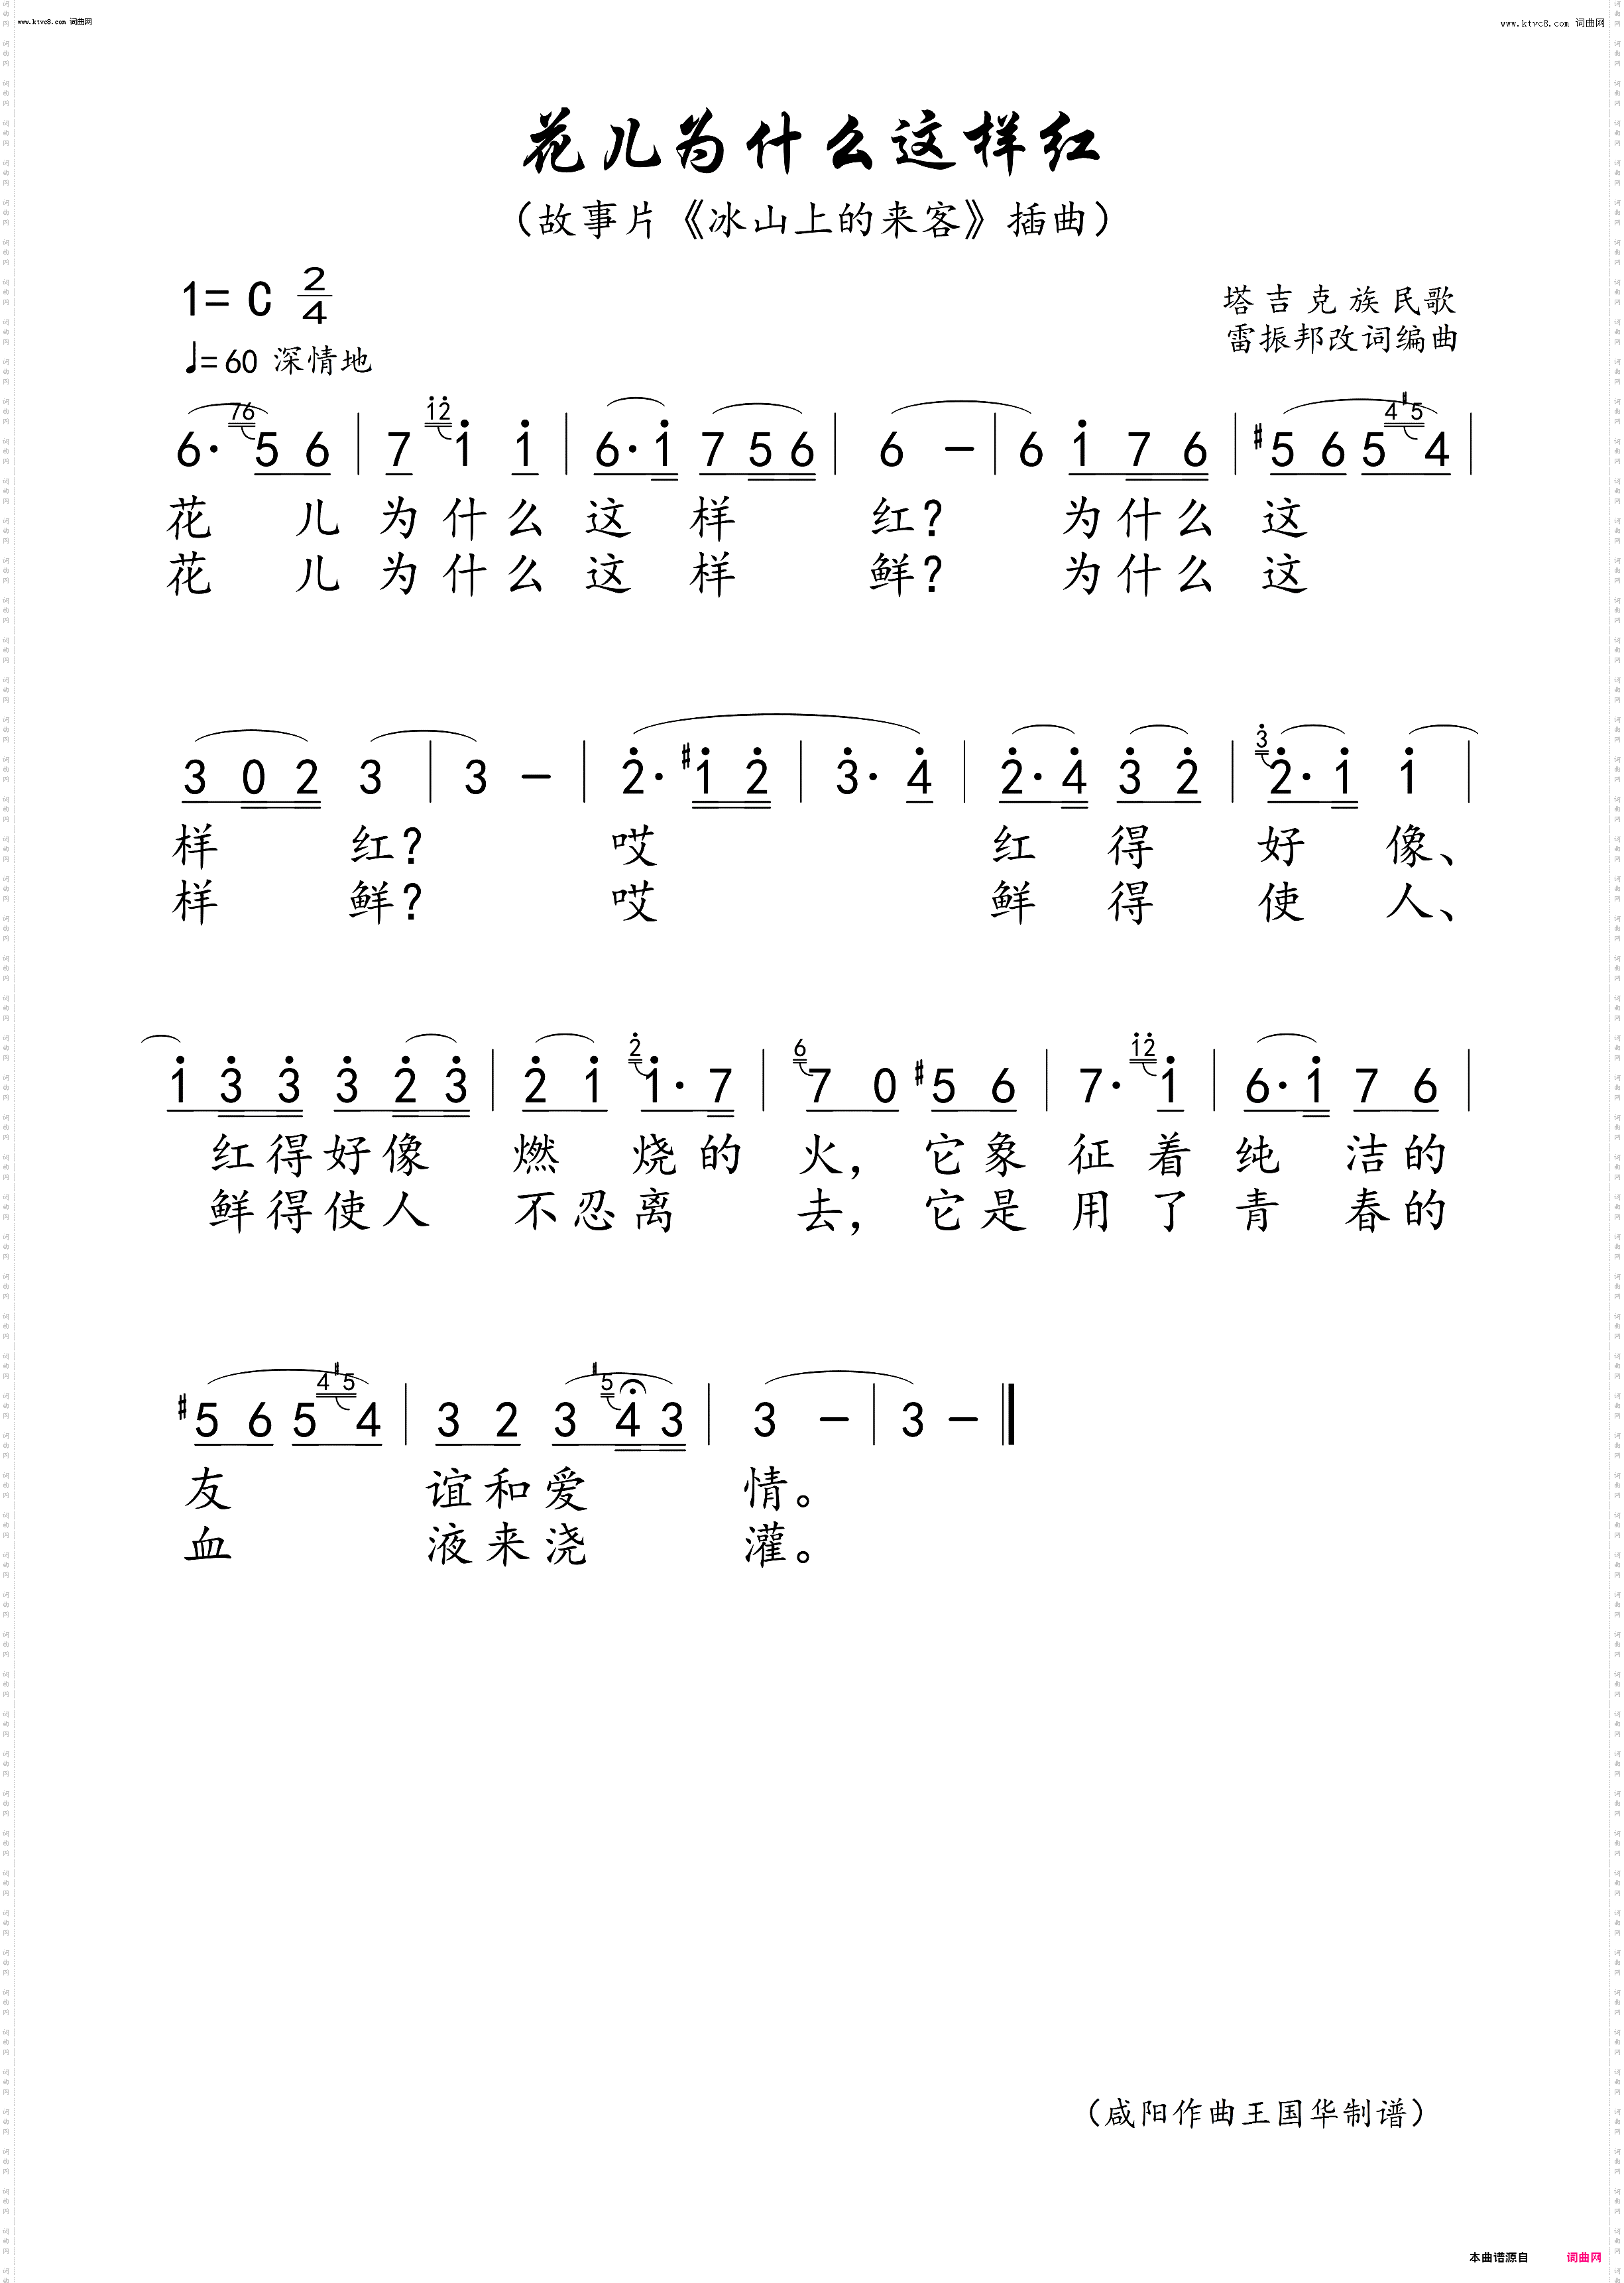 www.ktvc8.com 词曲网
www.ktvc8.com 词曲网
花儿为什么这样红
（故事片《冰山上的来客》插曲）
1= C 2/4
塔吉克族民歌
♩=60 深情地
雷振邦改词编曲
76 1̇2̇ 4#5
6· 5 6 | 7 1̇ 1̇ | 6· 1̇ 7 5 6 | 6 – | 6 1̇ 7 6 | #5 6 5 4 |
花 儿 为 什 么 这 样 红？ 为 什 么 这
花 儿 为 什 么 这 样 鲜？ 为 什 么 这
3̇
3 0 2 3 | 3 – | 2̇· #1̇ 2̇ | 3̇· 4̇ | 2̇· 4̇ 3̇ 2̇ | 2̇· 1̇ 1̇ |
样 红？ 哎 红 得 好 像、
样 鲜？ 哎 鲜 得 使 人、
2̇ 6 1̇2̇
1̇ 3̇ 3̇ 3̇ 2̇ 3̇ | 2̇ 1̇ 1̇· 7 | 7 0 #5 6 | 7· 1̇ | 6· 1̇ 7 6 |
红 得 好 像 燃 烧 的 火， 它 象 征 着 纯 洁 的
鲜 得 使 人 不 忍 离 去， 它 是 用 了 青 春 的
4#5 #5
#5 6 5 4 | 3 2 3 4 3 | 3 – | 3 – ‖
友 谊 和 爱 情。
血 液 来 浇 灌。
（咸阳作曲王国华制谱）
本曲谱源自 词曲网